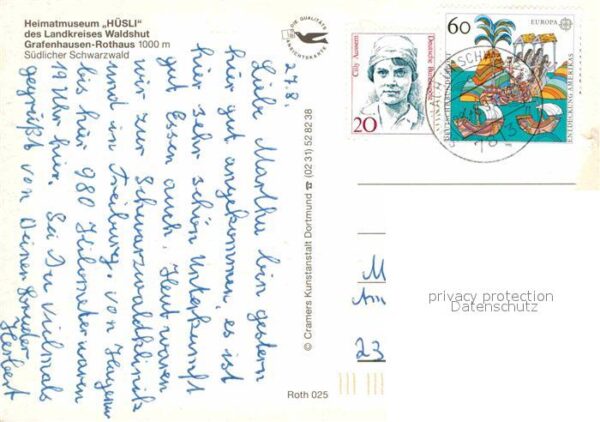 Heimatmuseum „HÜSLI“
des Landkreises Waldshut
Grafenhausen-Rothaus 1000 m
Südlicher Schwarzwald
DIE QUALITÄTS
ANSICHTSKARTE
27.8.
Liebe Martha bin gestern
hier gut angekommen, es ist
hier sehr schön Unterkunft
gut Essen auch. Heut waren
wir zur Schwarzwaldklinik
und in Freiburg, von Hagen
bis hier 980 Kilometer waren
19 Uhr hier. Sei Du vielmals
gegrüßt von Deinem Bruder
Herbert
© Cramers Kunstanstalt Dortmund ☎ (02 31) 52 82 38
Roth 025
Cilly Aussem
Deutsche Bundespost
20
60
EUROPA
DEUTSCHE BUNDESPOST
ENTDECKUNG AMERIKAS
M
Am
23
privacy protection
Datenschutz